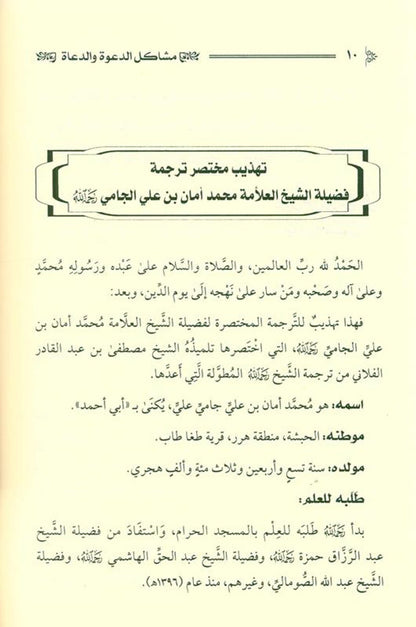 ١٠ مشاكل الدعوة والدعاة
تهذيب مختصر ترجمة
فضيلة الشيخ العلامة محمد أمان بن علي الجامي رحمه الله
الحَمْدُ لله ربِّ العالمين، والصَّلاة والسَّلام على عَبْده ورَسُولِهِ مُحمَّدٍ
وعلى آله وصَحْبه ومَنْ سار على نَهْجه إلىٰ يوم الدِّين، وبعد:
فهذا تهذيبٌ للتَّرجمة المختصرة لفضيلة الشَّيخ العلَّامة مُحمَّد أمان بن
عليِّ الجاميِّ رحمه الله، التي اخْتَصرها تلميذُهُ الشيخ مصطفىٰ بن عبد القادر
الفلاني من ترجمة الشَّيخ رحمه الله المُطوَّلة الَّتِي أَعدَّها.
اسمه: هو مُحمَّد أمان بن عليِّ جامي عليِّ، يُكنَىٰ بـ «أبي أحمد».
موطنه: الحبشة، منطقة هرر، قرية طغا طاب.
مولده: سنة تسعٍ وأربعين وثلاث مئةٍ وألفٍ هجري.
طلبه للعلم:
بدأ رحمه الله طَلَبه للعِلْم بالمسجد الحرام، وَاسْتَفَادَ من فضيلة الشَّيخ
عبد الرَّزَّاق حمزة رحمه الله، وفضيلة الشَّيخ عبد الحقِّ الهاشمي رحمه الله، وفضيلة
الشَّيخ عبد الله الصُّوماليِّ، وغيرهم، منذ عام (١٣٩٦هـ).